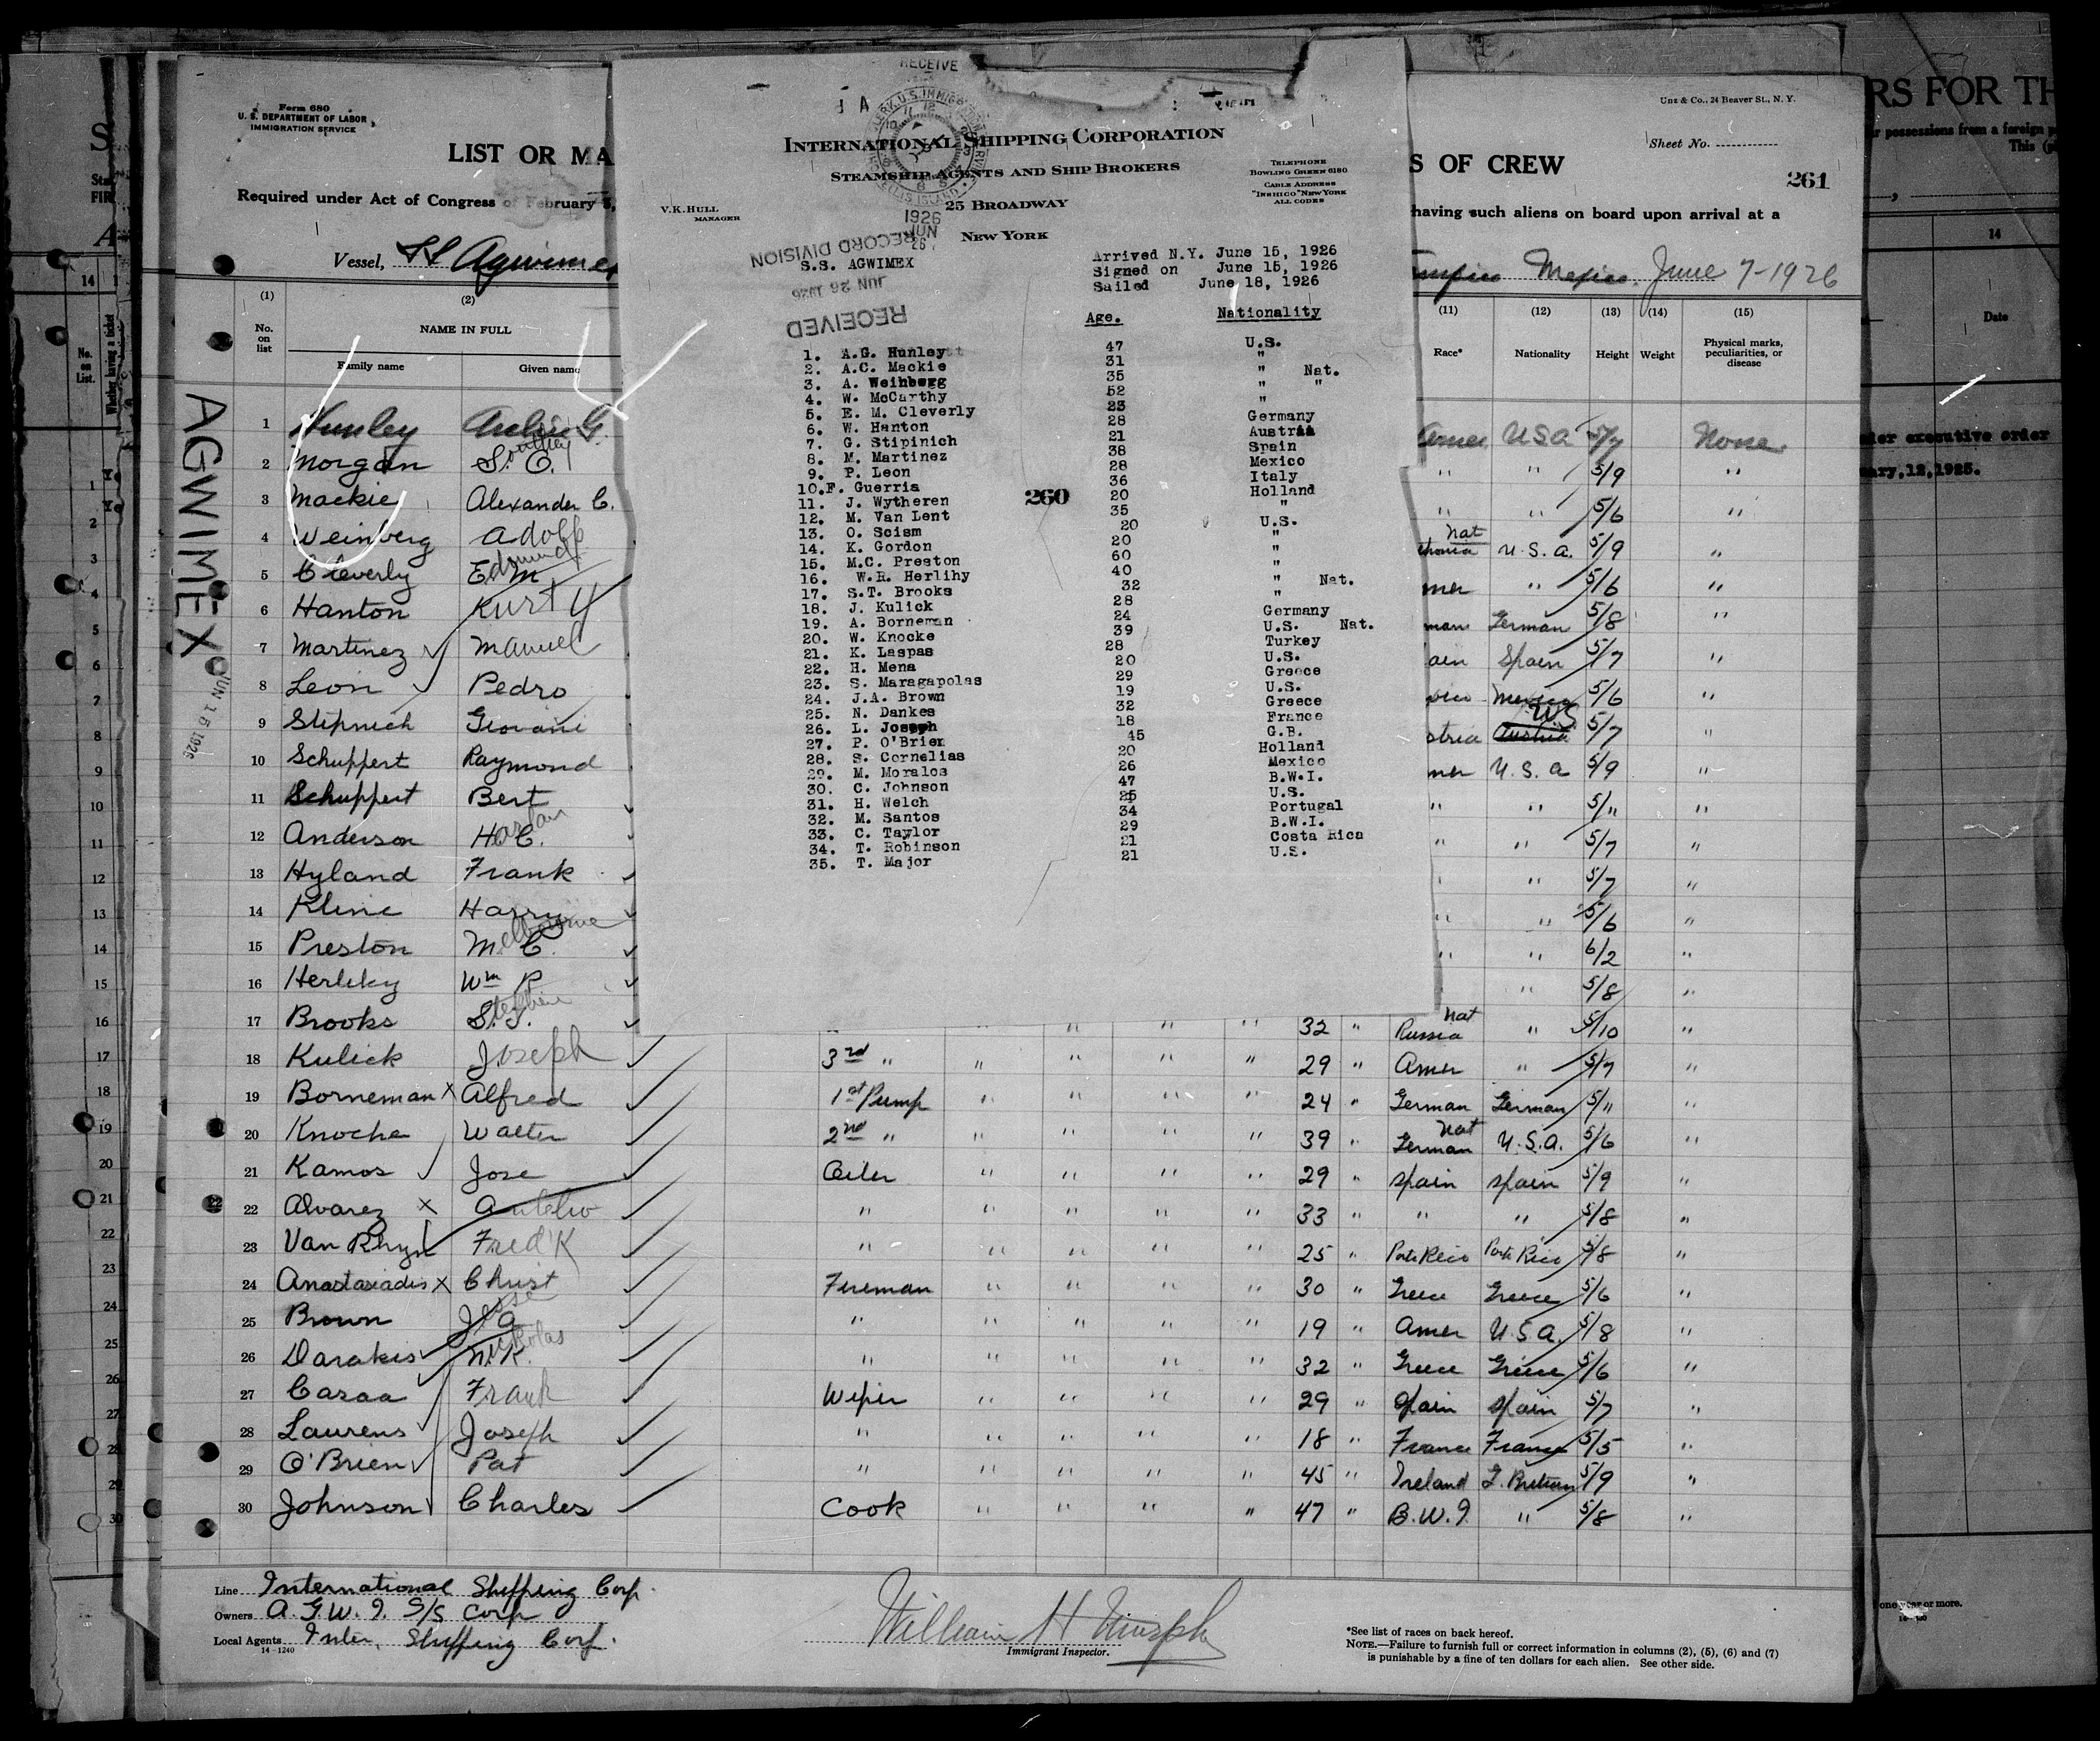 Form 680
U. S. DEPARTMENT OF LABOR
IMMIGRATION SERVICE
LIST OR MA
Required under Act of Congress of February 5,
Vessel, SS Agwimex
AGWIMEX
JUN 15 1926
RECEIVE
INTERNATIONAL SHIPPING CORPORATION
STEAMSHIP AGENTS AND SHIP BROKERS
25 BROADWAY
NEW YORK
V.K.HULL
MANAGER
TELEPHONE
BOWLING GREEN 6180
CABLE ADDRESS
"INSHICO" NEW YORK
ALL CODES
1926
JUN
26
RECORD DIVISION
JUN 26 1926
RECEIVED
S.S. AGWIMEX
Arrived N.Y. June 15, 1926
Signed on June 15, 1926
Sailed June 18, 1926
Age. Nationality
1. A.G. Hunley 47 U.S.
2. A.C. Mackie 31 "
3. A. Weinberg 35 " Nat.
4. W. McCarthy 52 " "
5. E. M. Cleverly 23 "
6. W. Hanton 28 Germany
7. G. Stipinich 21 Austria
8. M. Martinez 38 Spain
9. P. Leon 28 Mexico
10. F. Guerria 36 Italy
11. J. Wytheren 20 Holland
12. M. Van Lent 35 "
13. O. Scism 20 U.S.
14. K. Gordon 20 "
15. M.C. Preston 60 "
16. W.R. Herlihy 40 "
17. S.T. Brooks 32 " Nat.
18. J. Kulick 28 "
19. A. Borneman 24 Germany
20. W. Knocke 39 U.S. Nat.
21. K. Laspas 28 Turkey
22. H. Mena 20 U.S.
23. S. Maragapolas 29 Greece
24. J.A. Brown 19 U.S.
25. N. Dankes 32 Greece
26. L. Joseph 18 France
27. P. O'Brien 45 G.B.
28. S. Cornelias 20 Holland
29. M. Moralos 26 Mexico
30. C. Johnson 47 B.W.I.
31. H. Welch 25 U.S.
32. M. Santos 34 Portugal
33. C. Taylor 29 B.W.I.
34. T. Robinson 21 Costa Rica
35. T. Major 21 U.S.
260
Unz & Co., 24 Beaver St., N. Y.
Sheet No.
S OF CREW
261
having such aliens on board upon arrival at a
Mexico June 7-1926
(1) (2) (11) (12) (13) (14) (15)
No. on list NAME IN FULL Race* Nationality Height Weight Physical marks, peculiarities, or disease
Family name Given name
1 Hunley Archie G. Amer USA 5/7 None
2 Morgan S. O. " " 5/9 "
3 Mackie Alexander C. " " 5/6 "
4 Weinberg Adolf nat U.S.A. 5/9 "
5 Cleverly Edmund M mer " 5/6 "
6 Hanton Kurt man German 5/8 "
7 Martinez Manuel ain Spain 5/7 "
8 Leon Pedro Mexico 5/6 "
9 Stipnich Giovani stria Austria US 5/7 "
10 Schuppert Raymond mer U.S.a 5/9 "
11 Schuppert Bert " " 5/11 "
12 Anderson H.C. Harlan " " 5/7 "
13 Hyland Frank " 5/7 "
14 Kline Harry " " 5/6 "
15 Preston M. C. Melbourne " " 6/2 "
16 Herlihy Wm R " 5/8 "
17 Brooks S. T. Stephen " " " " 32 " nat Russia " 5/10 "
18 Kulick Joseph 3rd " " " " " 29 " Amer " 5/7 "
19 Borneman X Alfred 1st Pump " " " " 24 " German German 5/11 "
20 Knoche Walter 2nd " " " " " 39 " nat German U.S.A. 5/6 "
21 Ramos Jose Oiler " " " " 29 " Spain Spain 5/9 "
22 Alvarez X " " " " " 33 " " " 5/8 "
23 Van Rhyn Fred'K " " " " " 25 " Porto Rico Porto Rico 5/8 "
24 Anastasiadis X Christ Fireman " " " " 30 " Greece Greece 5/6 "
25 Brown J. A. Jesse " " " " " 19 " Amer U.S.A. 5/8 "
26 Darakis N. K. Nickolas " " " " " 32 " Greece Greece 5/6 "
27 Casaa Frank Wiper " " " " 29 " Spain Spain 5/7 "
28 Laurens Joseph " " " " " 18 " France France 5/5 "
29 O'Brien Pat " " " " " 45 " Ireland G. Britian 5/9 "
30 Johnson Charles Cook " " " " 47 " B.W.I. " 5/8 "
Line International Shipping Corp.
Owners A.G.W.I. S/S Corp
Local Agents Inter. Shipping Corp.
14-1240
William H Murphy
Immigrant Inspector.
*See list of races on back hereof.
NOTE.—Failure to furnish full or correct information in columns (2), (5), (6) and (7)
is punishable by a fine of ten dollars for each alien. See other side.
S
FIR
A
14
No. on List.
Whether having a ticket
1
2
3
4
5
6
7
8
9
10
11
12
13
14
15
16
17
18
19
20
21
22
23
24
25
26
27
28
29
30
RS FOR TH
r possessions from a foreign p
This (p
14
Date
der executive order
ary,12,1925.
one year or more.